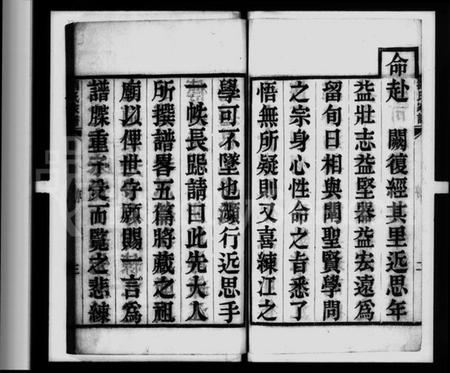 命赴　闕復經其里近思年
益壯志益堅器益宏遠爲
留旬日相與闡聖賢學問
之宗身心性命之旨悉了
悟無所疑則又喜練江之
學可不墜也瀕行近思手
一帙長跽請曰此先大人
所撰譜畧五篇將藏之祖
廟以俾世守願賜一言爲
譜牒重予受而覽之悲練